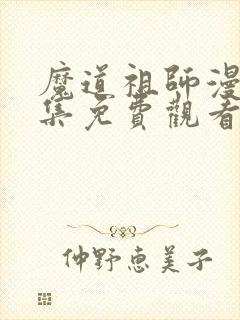 魔道祖師漫
集免費觀看
仲野恵美子